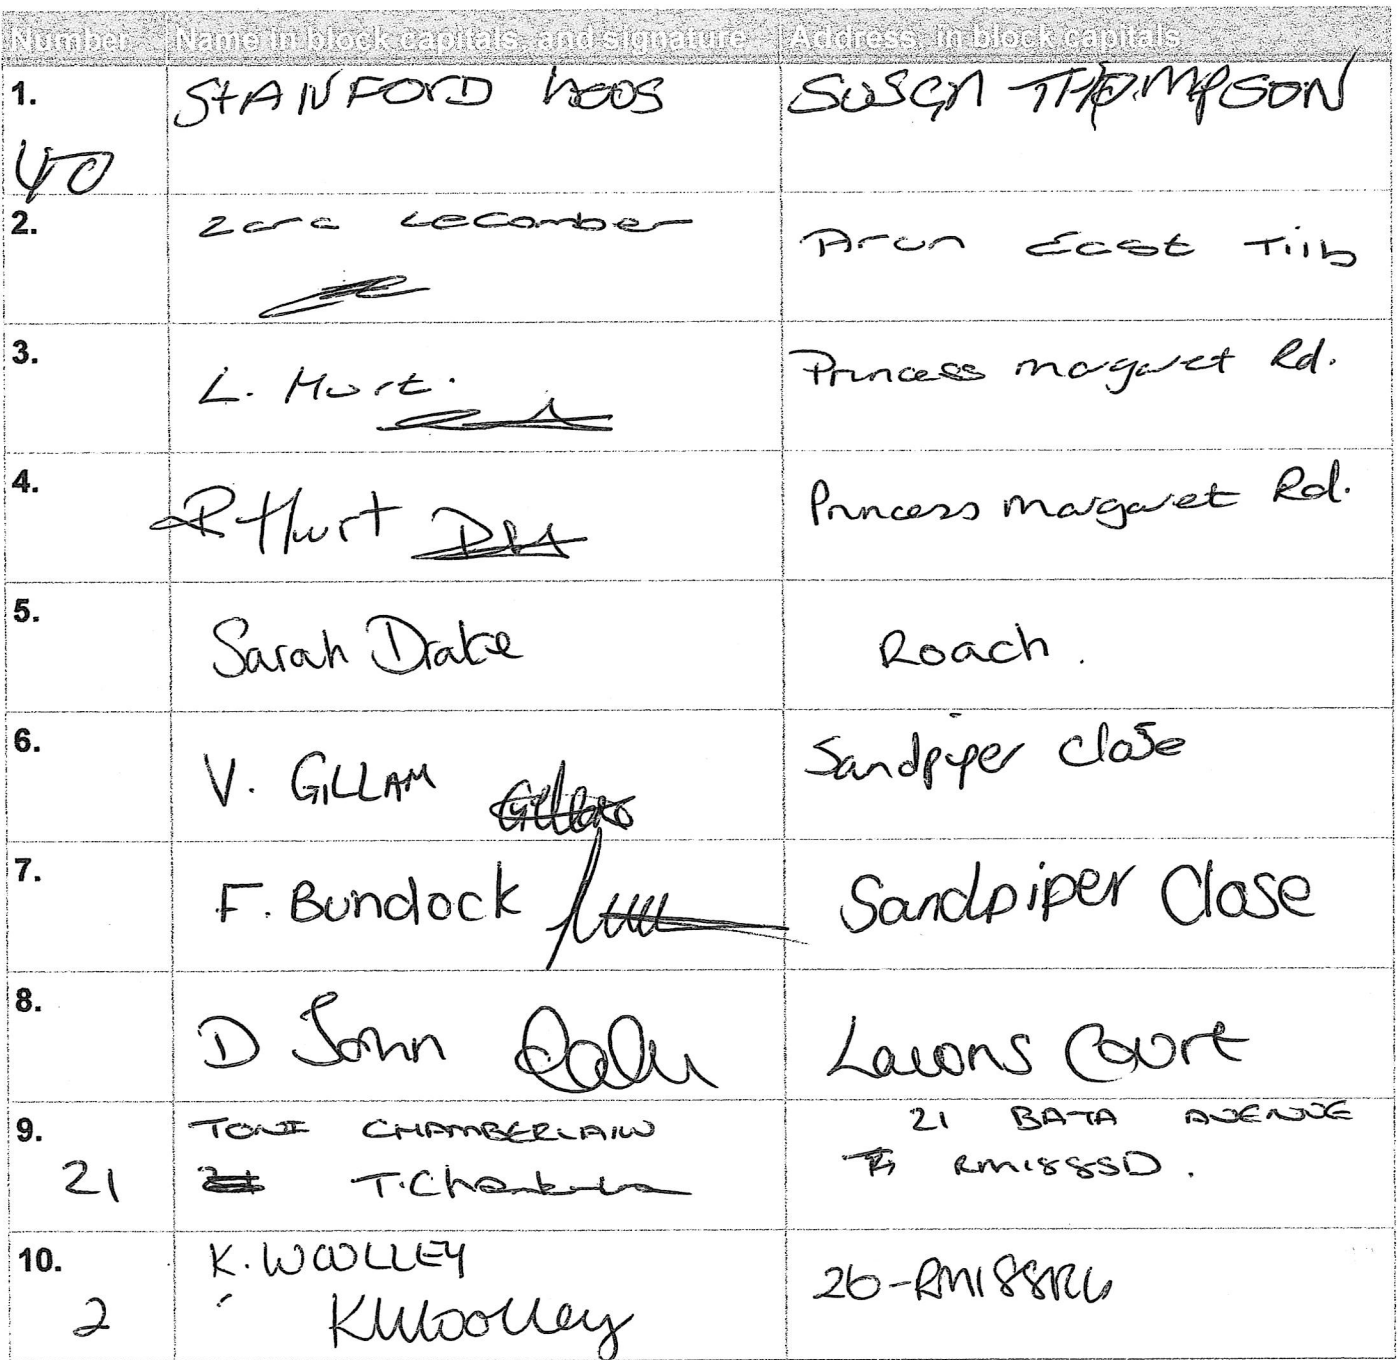 Number Name in block capitals, and signature Address, in block capitals
1. STANFORD HOOS SUSAN THOMPSON
40
2. Zara Lecomber Arun East Tilb
3. L. Hurt. Princess margaret Rd.
4. R Hurt Princess margaret Rd.
5. Sarah Drake Roach.
6. V. GILLAM Gillam Sandpiper Close
7. F. Bundock Sandpiper Close
8. D John Lawns Court
9. TONI CHAMBERLAIN 21 BATA AVENUE
21 T.Chamberlain RM188SD.
10. K. WOOLLEY 26-RM188RU
2 KWoolley